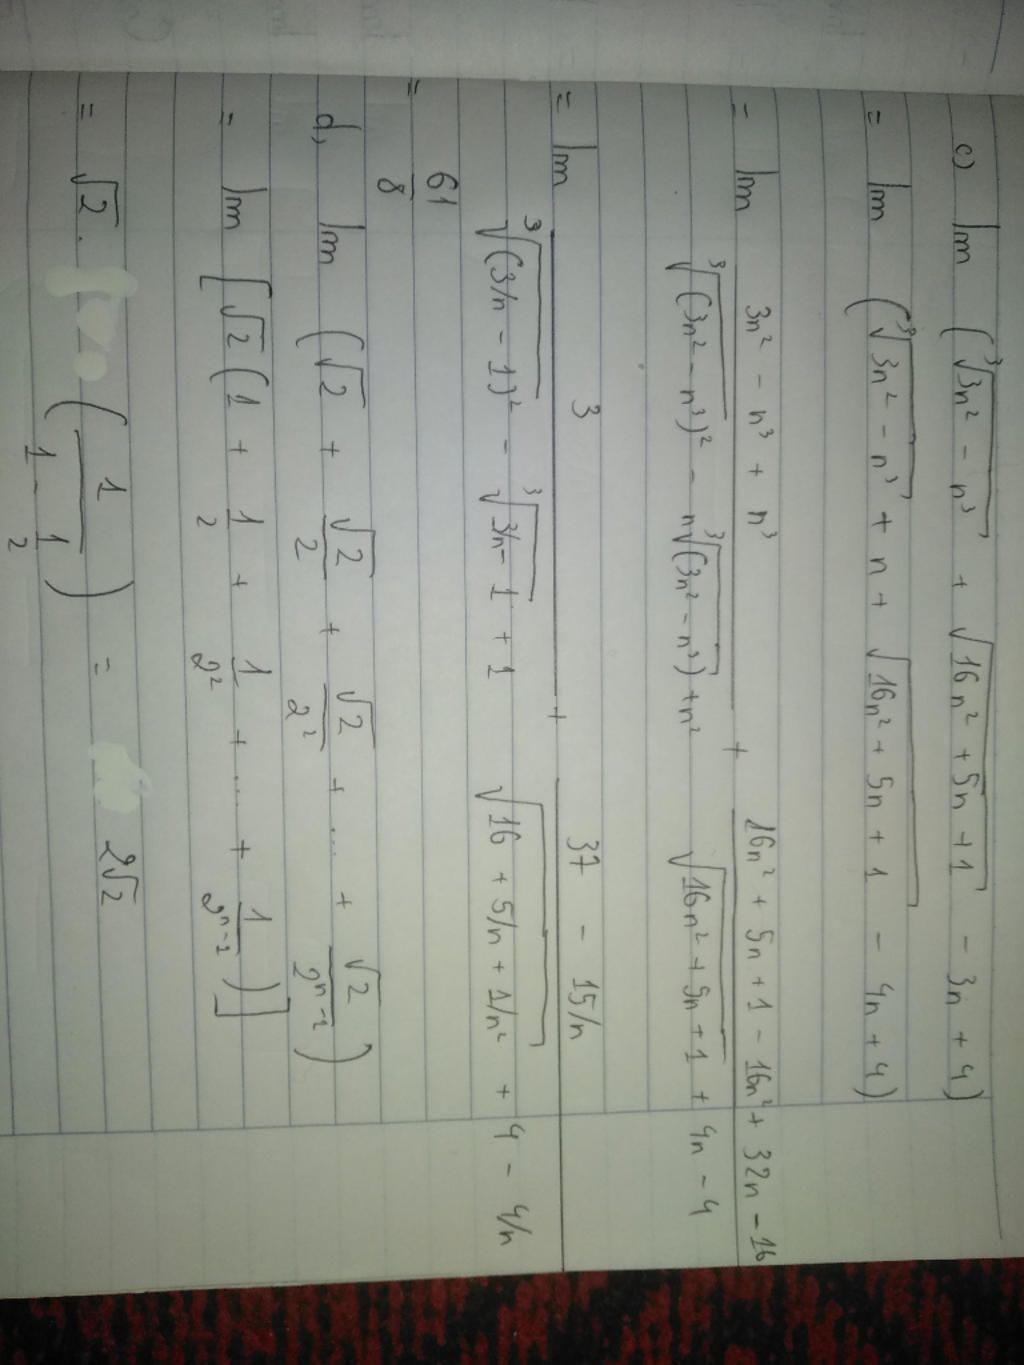 c) lim (∛(3n² - n³) + √(16n² + 5n + 1) - 3n + 4)
= lim (∛(3n² - n³) + n + √(16n² + 5n + 1) - 4n + 4)
= lim (3n² - n³ + n³)/(∛((3n² - n³)²) - n∛(3n² - n³) + n²) + (16n² + 5n + 1 - 16n² + 32n - 16)/(√(16n² + 5n + 1) + 4n - 4)
= lim 3/(∛((3/n - 1)²) - ∛(3/n - 1) + 1) + (37 - 15/n)/(√(16 + 5/n + 1/n²) + 4 - 4/n)
= 61/8
d, lim (√2 + √2/2 + √2/2² + .... + √2/2ⁿ⁻¹)
= lim [√2 (1 + 1/2 + 1/2² + .... + 1/2ⁿ⁻¹)]
= √2 . (1/(1 - 1/2)) = 2√2